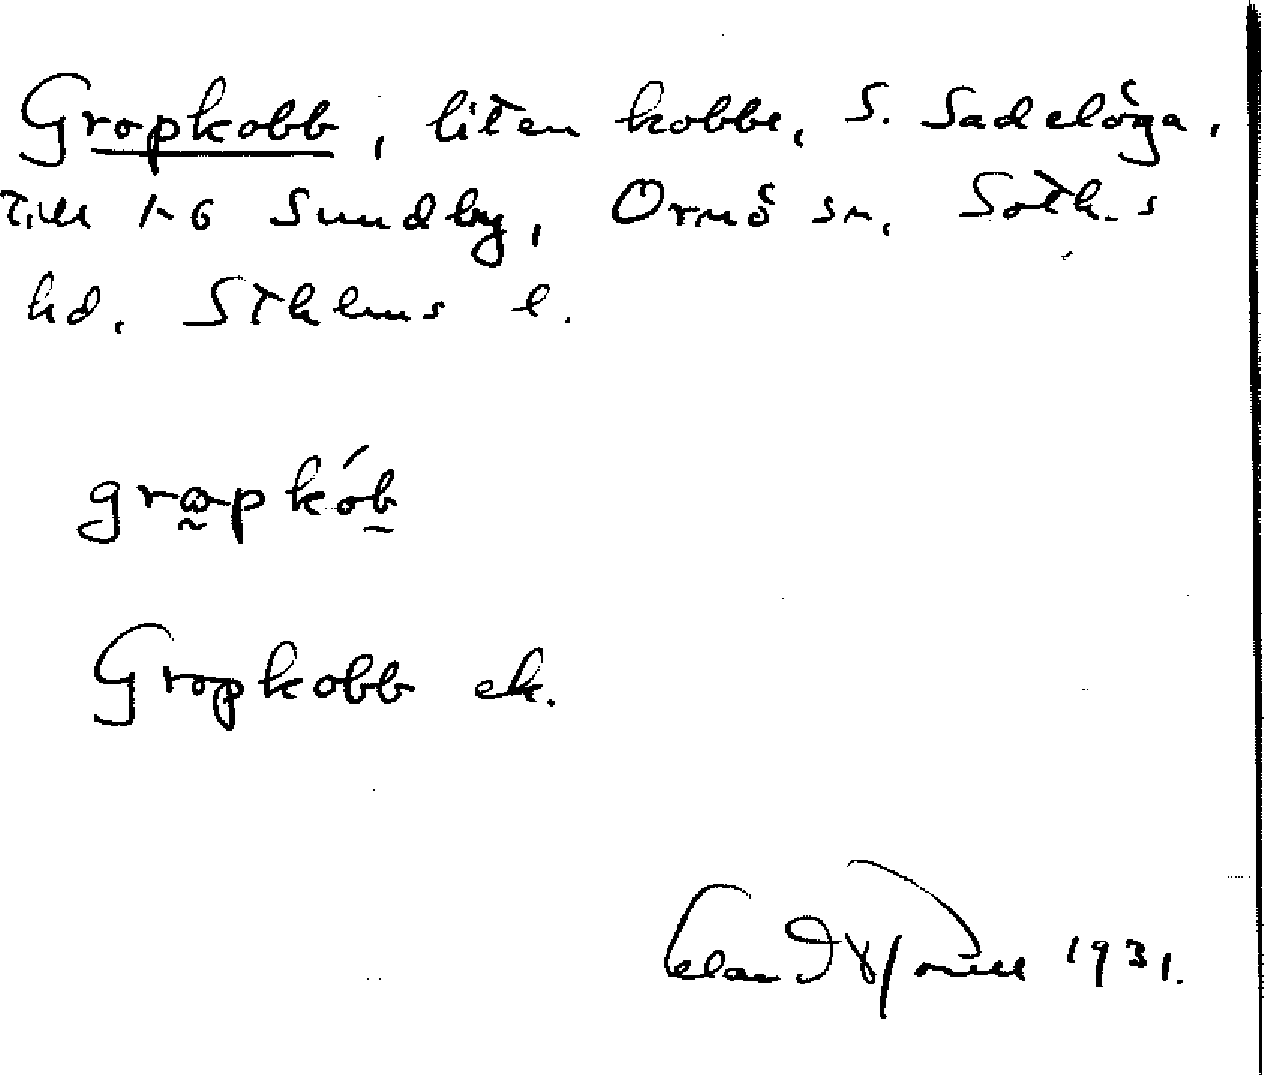 Gropkobb, liten kobbe, S. Sadelöga,
till 1-6 Sundby, Ornö sn, Soth.s
hd. Sthlms l.
Gropkobb ek.
1931.